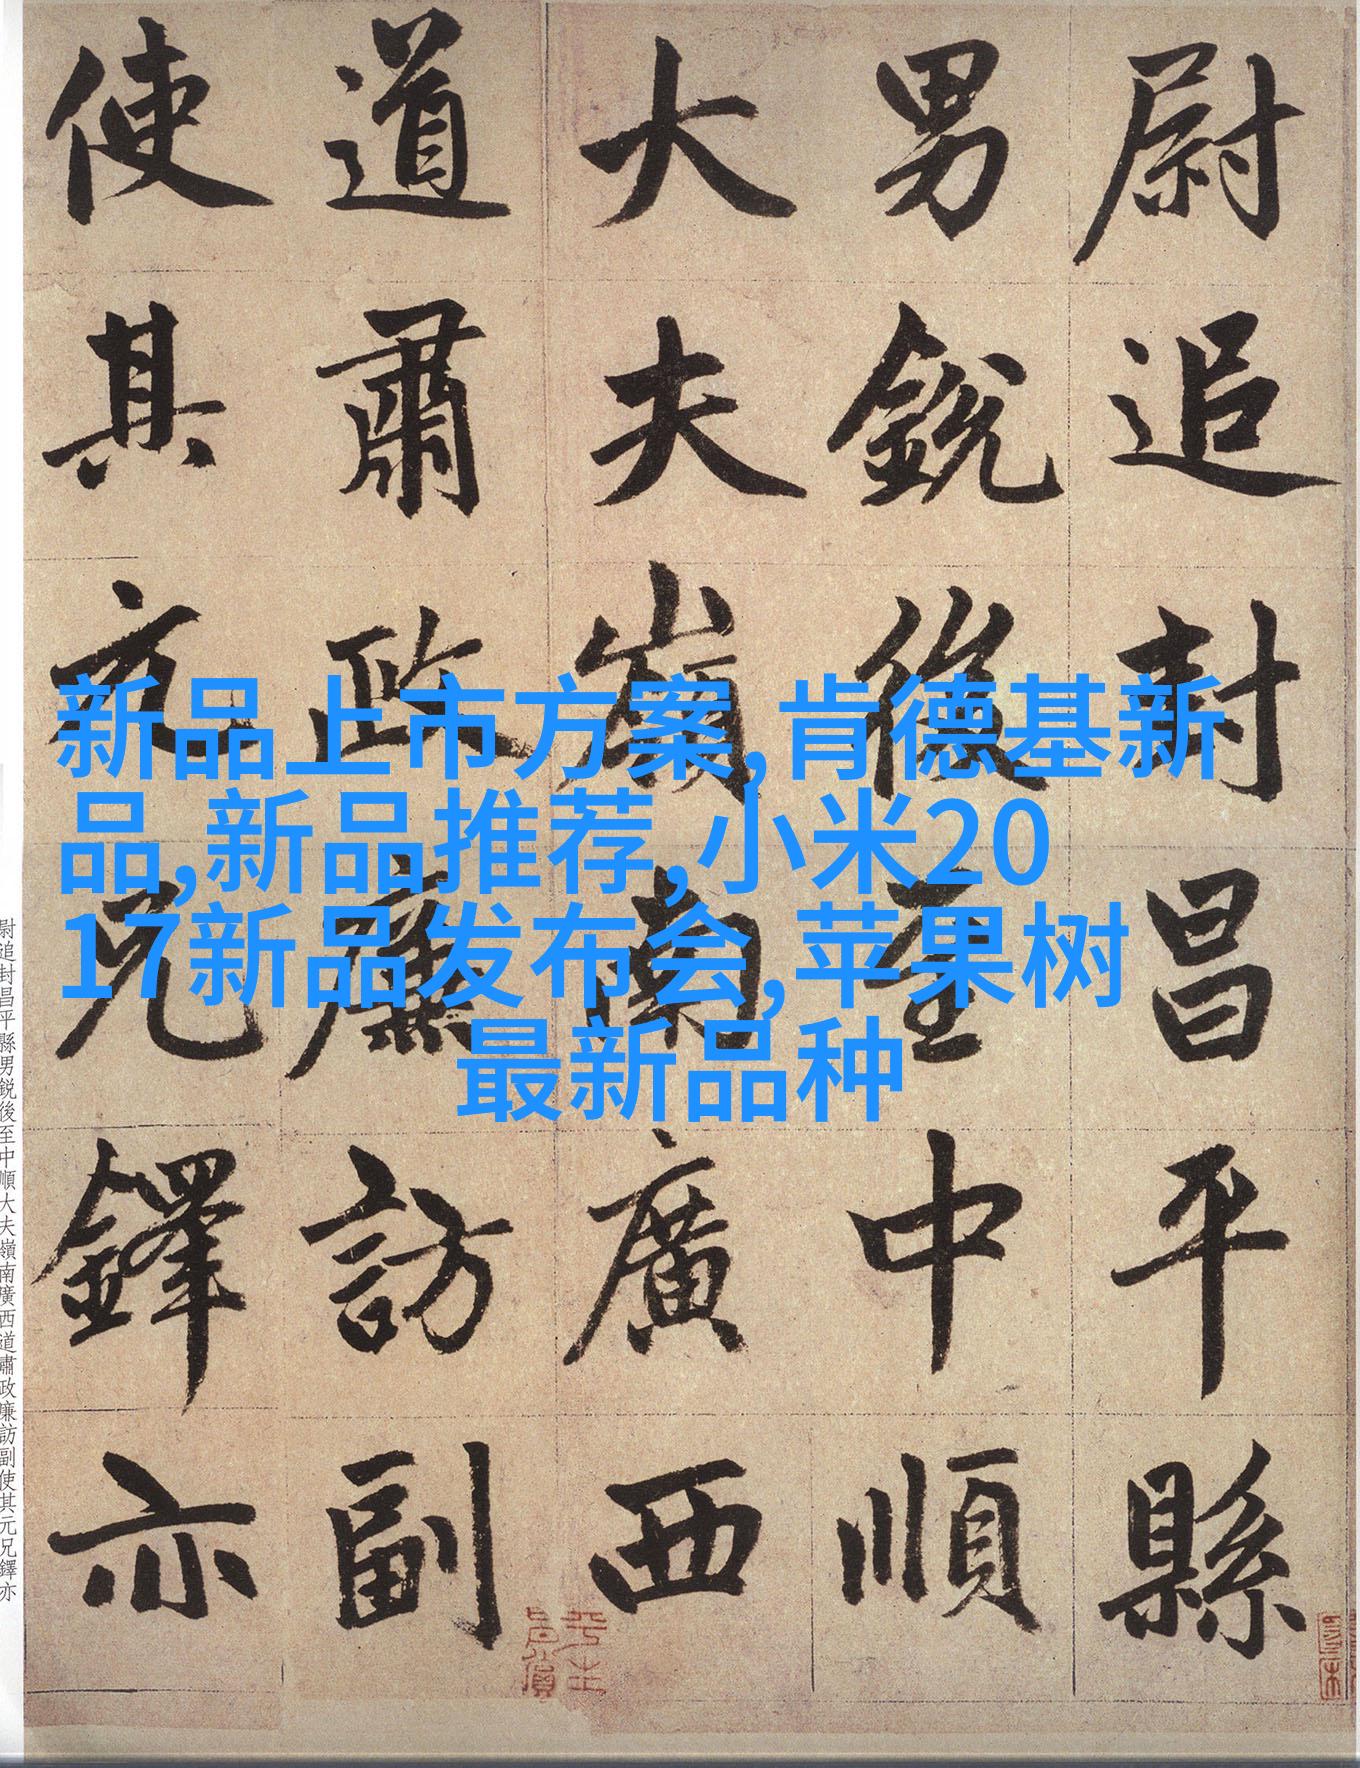 尉追封昌平縣
男銳後至中順
大夫嶺南廣西
道肅政廉訪副
使其元兄鐸亦
新品上市方案,肯德基新
品,新品推荐,小米20
17新品发布会,苹果树
最新品种
尉追封昌平縣男銳後至中順大夫嶺南廣西道肅政廉訪副使其元兄鐸亦